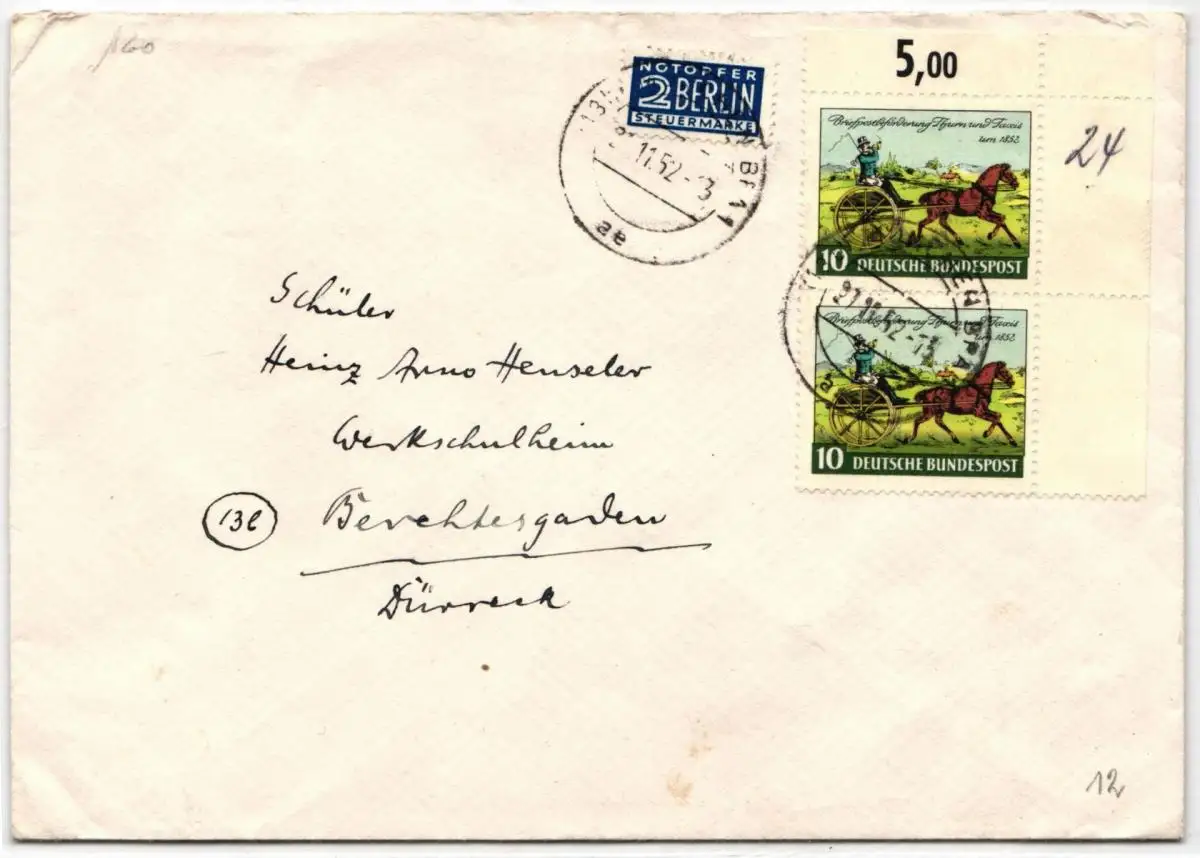 160
NOTOPFER
2 BERLIN
STEUERMARKE
11.52-3
BPA 1
ae
5,00
24
Briefpostbeförderung Thurn und Taxis
um 1852
10 DEUTSCHE BUNDESPOST
Briefpostbeförderung Thurn und Taxis
um 1852
10 DEUTSCHE BUNDESPOST
Schüler
Heinz Arno Henseler
Werkschulheim
(13b) Berchtesgaden
Dürreck
12